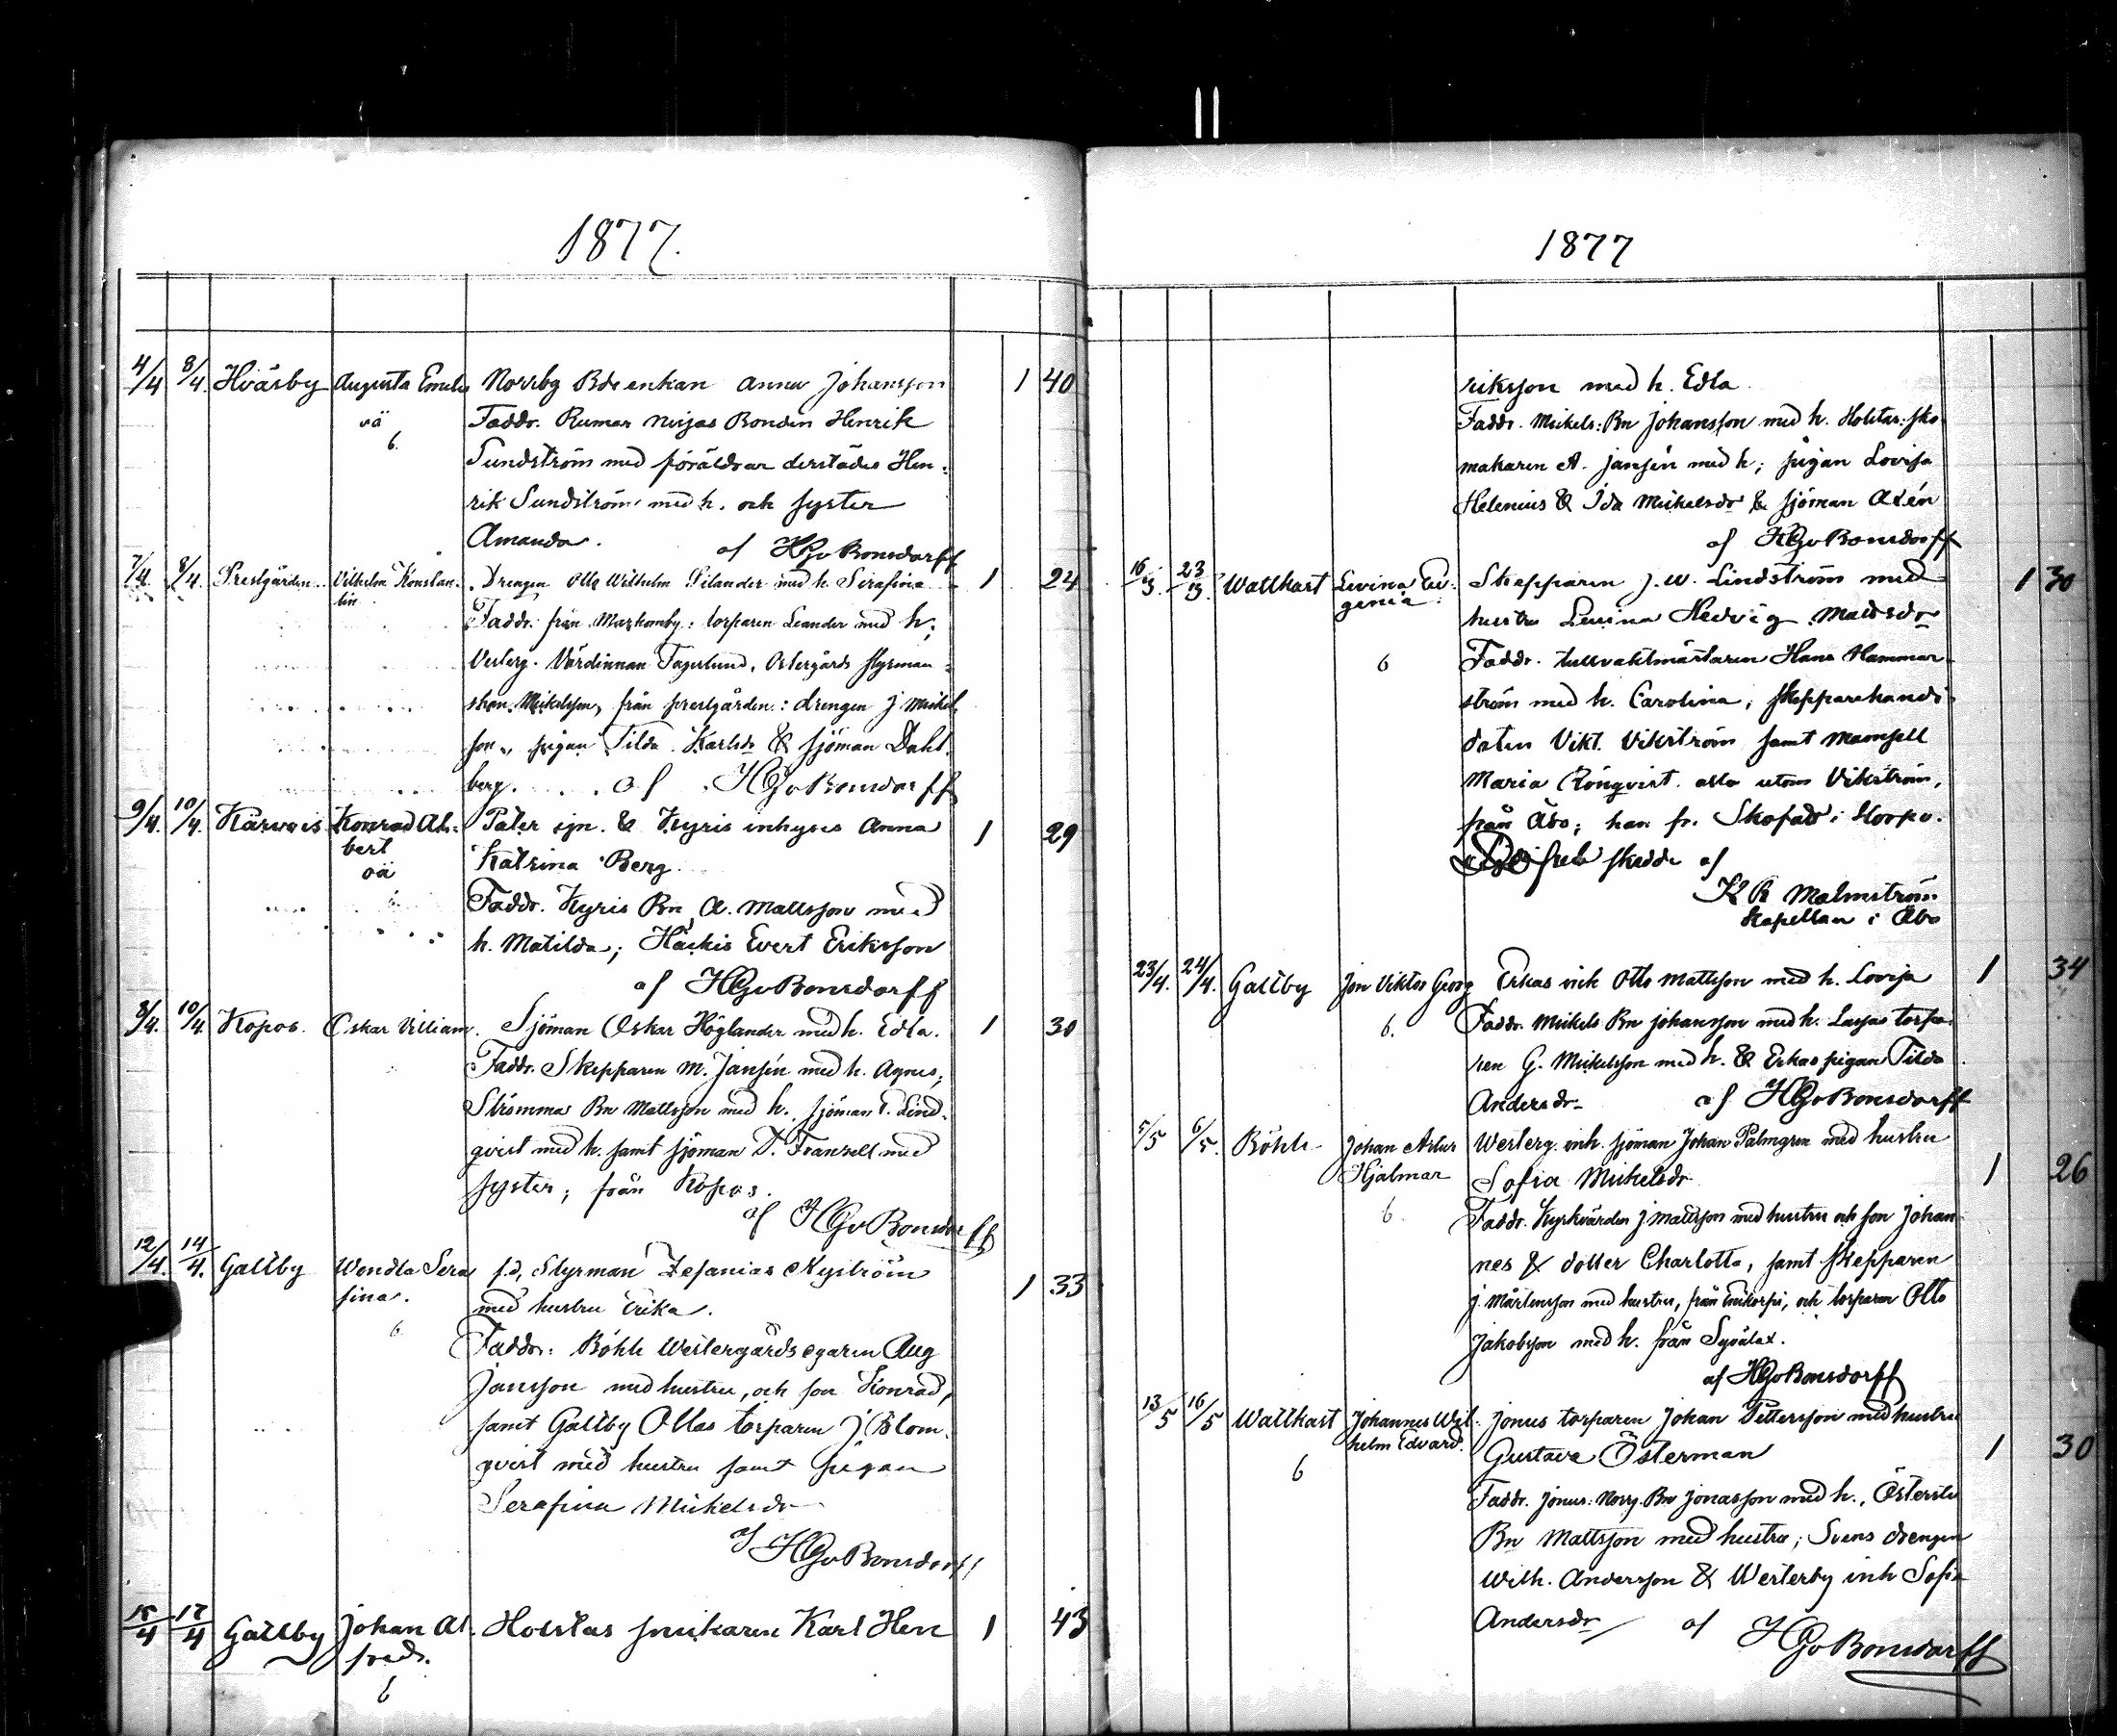 1877.
4/4 8/4. Hväsby Augusta Emelia Norrby Bdeenkan Anna Johansson 1 40
oä Faddr. Rumar Bonden Henrik
6. Sundström med föräldrar derstädes Hen-
rik Sundström med h. och syster
Amanda. af HGvBonsdorff
7/4. 8/4. Prestgården Vilhelm Konstan- Drengen Otto Wilhelm Silander med h. Serafina 1 24
tin Faddr. från Markomby: torparen Leander med h.,
Vesterg. Värdinnan Fagerlund, Östergårds styrman-
skan Mickelsson, från prestgården: drengen J Mickel-
son, pigan Tilda Karlsdr & sjöman Dahl-
berg. af HGvBonsdorff
9/4. 10/4. Kärvois Konrad Al- Pater ign. & Kyris inhyses Anna 1 29
bert Katrina Berg
oä Faddr. Kyris Bn A. Mattsson med
h. Matilda; Häckis Evert Eriksson
af HGvBonsdorff
8/4. 10/4. Kopos. Oskar Villiam. Sjöman Oskar Höglander med h. Edla. 1 30
Faddr. Skepparen M. Jansén med h. Agnes,
Strömma Bn Mattsson med h. sjöman T. Lind-
qvist med h. samt sjöman D. Franzell med
syster; från Kopos.
af HGvBonsdorff
12/4. 14/4. Galtby Wendla Sera f.d. Styrman Zefanias Nyström 1 33
fina. med hustru Erika.
6 Faddr: Böhle Westergårds egaren Aug
Jansson med hustru, och son Konrad,
samt Galtby Ollas torparen J. Blom-
qvist med hustru samt pigan
Serafina Mickelsdr
af HGvBonsdorff
15/4 17/4 Galtby Johan Al- Holstas smikaren Karl Hen 1 43
fred.
6
1877
riksson med h. Edla
Faddr. Mickels: Bn Johansson med h. Holstas: sko-
makaren A. Jansén med h; pigan Lovisa
Helenius & Ida Mickelsdr & sjöman Axén
af HGvBonsdorff
16/3. 23/3. Wattkast Levina Eu- Skepparen J. W. Lindström med 1 30
genia. hustru Levina Hedvig Mattsdr
6 Faddr. tullvaktmästaren Hans Hammar-
ström med h. Carolina, skepparekandi-
daten Vikt. Vikström samt Mamsell
Maria Rönqvist. alla utom Vikström,
från Åbo; han fr. Skofat i Korpo.
skedde af
K R Malmström
Kapellan i Åbo
23/4. 24/4. Galtby Jon Viktor Georg Erkas inh Otto Mattsson med h. Lovisa 1 34
6. Faddr. Mickels Bn Johansson med h. Lassas torpa-
ren G. Mickelsson med h. & Erkas pigan Tilda
Andersdr. af HGvBonsdorff
5/5 6/5. Böhle Johan Artur Westerg. inh. sjöman Johan Palmgren med hustru
Hjalmar Sofia Mickelsdr 1 26
6. Faddr. Kyrkvärden J Mattsson med hustru och son Johan-
nes & dotter Charlotta, samt skepparen
J. Mårtensson med hustru, från Enkorpi, och torparen Otto
Jakobsson med h. från Syvälax.
af HGvBonsdorff
13/5 16/5 Wattkast Johannes Wil- Jonus torparen Johan Pettersson med hustru
helm Edvard. Gustava Österman 1 30
6 Faddr. Jonus: Norrg. Bn Jonasson med h.,
Bn Mattsson med hustru; Svens drengen
Wilh. Andersson & Westerby inh Sofia
Andersdr af HGvBonsdorff